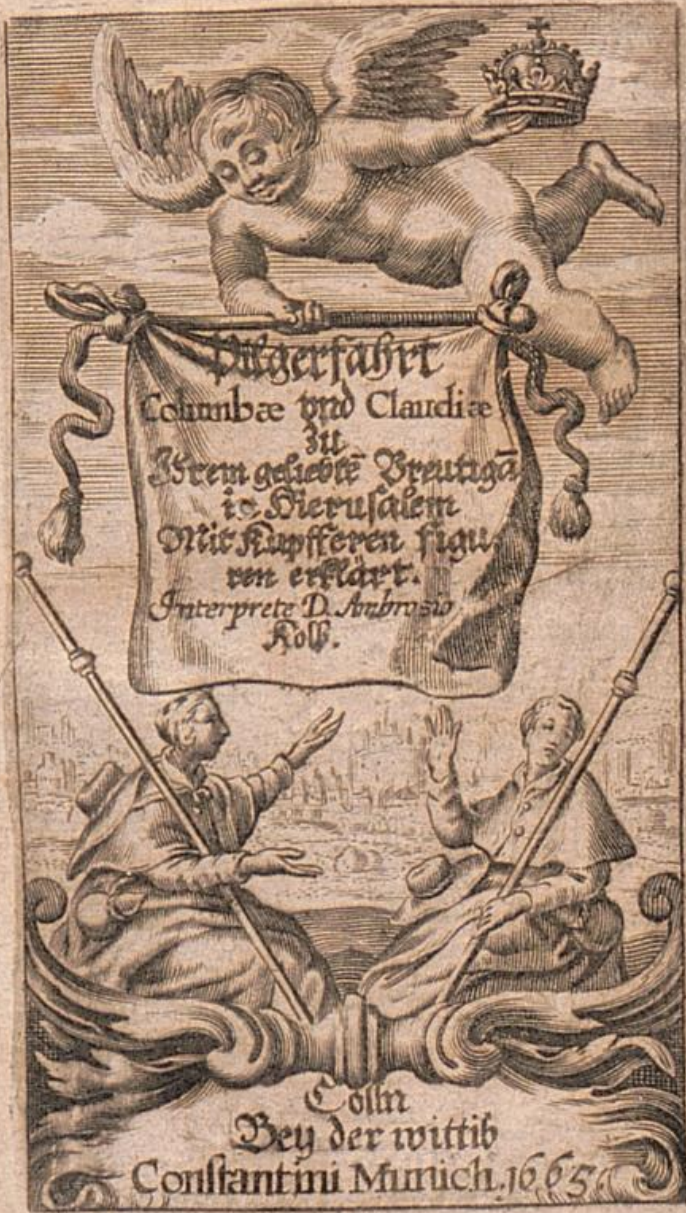 Pilgerfahrt
Columbæ vnd Claudiæ
zu
Ihrem geliebtē Breutigā
in Hierusalem
Mit Kupfferen figu
ren erklärt.
Interprete D. Ambrosio
Kolb.
Cölln
Bey der wittib
Constantini Munich. 1665.